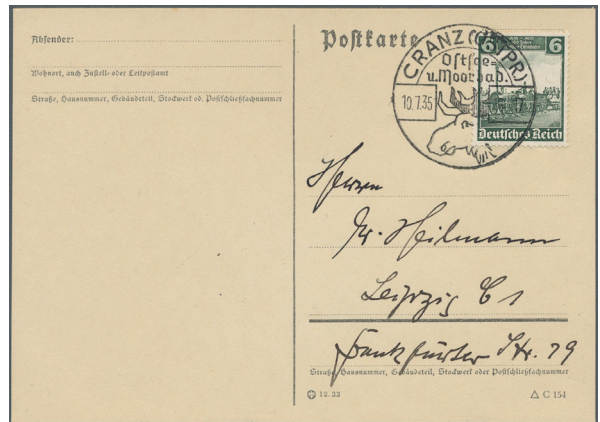 Absender:
Wohnort, auch Zustell- oder Leitpostamt
Straße, Hausnummer, Gebäudeteil, Stockwerk od. Postschließfachnummer
Postkarte
CRANZ (OSTPR)
Ostsee-
u. Moorbad.
10.7.35
6 6
Deutsches Reich
Herrn
Dr. Heilmann
Leipzig C 1
Frankfurter Str. 29
Straße, Hausnummer, Gebäudeteil, Stockwerk oder Postschließfachnummer
12. 33
C 154